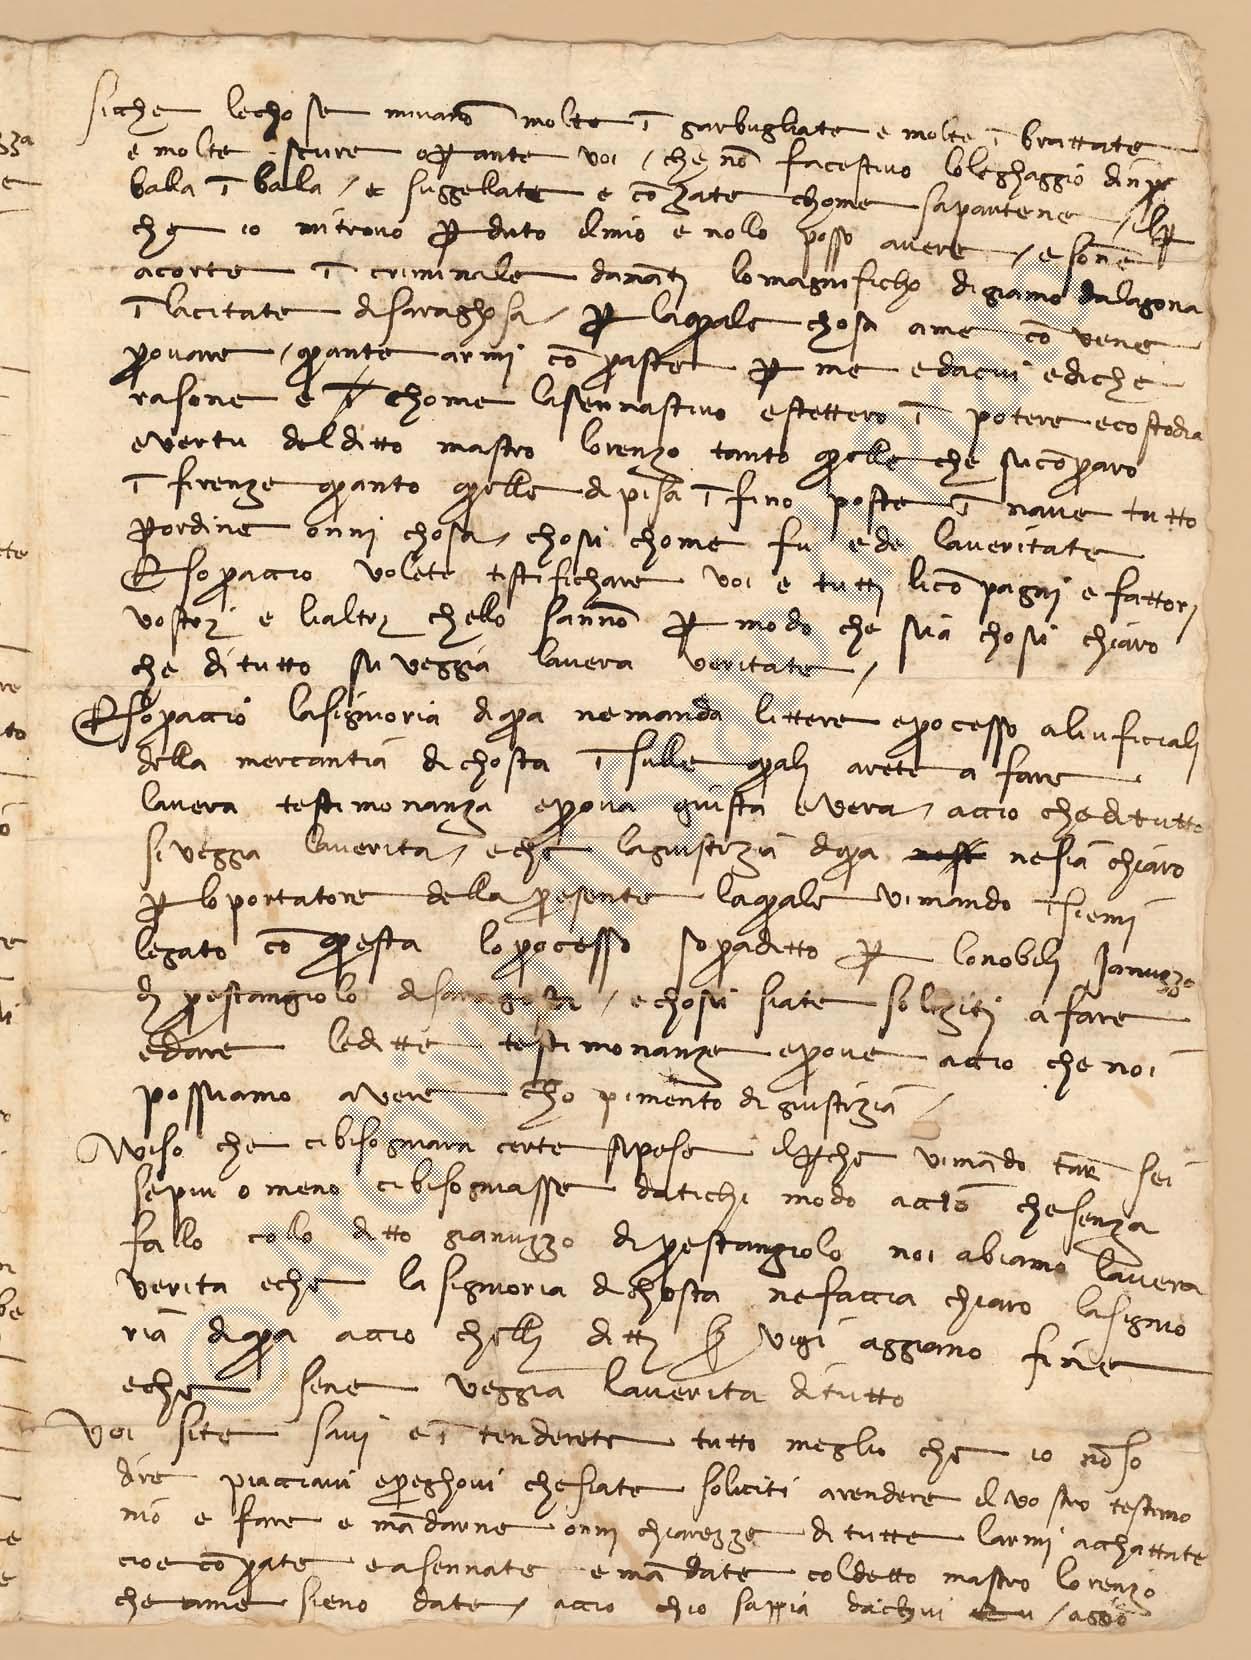 sicche lechose mivano molte ī garbugliate e molte ī brattate
e molte scure quante voi / che nō facestivo loleghaggio
balla ī balla / e suggellate e cōzate chome sapavtene / elꝑ
che io mi trovo ꝑduto elmio e nollo posso avere / e sone
acorte ī criminale dinanti lo magnificho di giamo dalagona
ī lacitate disaraghosa / ꝑ laquale chosa ame cō vene
provare / quante armi cō praste ꝑ me edacui ediche
rasone e chome lasennastivo estettero ī potere ecostodia
evertu del ditto mastro lorenzo tanto quelle che sicōpraro
ī firenze quanto quelle di pisa ī fino poste ī nave tutto
ꝑordine onni chosa / chosi chome fu ede laveritate
E sopraccio volete tistifichare voi e tutti licō pagni e fattori
vostri e lialtri chello sanno ꝑ modo che sia chosi chiaro
che di tutto si veggia lavera veritate /
E sopraccio lasignoria di qua nemanda littere eprocesso aliuficiali
della mercantia di chosta ī sulle quali arete a fare
lavera testimonanza eprova giusta evera / accio chedi tutto
si veggia laverita / eche lagiustizia di qua nesia chiaro
ꝑ lo portatore della presente laquale vimando īsiemi
legato cō questa loprocesso sopraditto ꝑ lonobili Januzzo
di prestangiolo disaragosa / echosi siate soliziti afare
edare leditte testimonanze eprove accio che noi
possiamo avere chopimento di giustizia /
Aviso che cibisogniara certe sipese elꝑche vimādo tarì sei
sepiu o meno cibisogniasse datichi modo acciō chesenza
fallo collo ditto gianuzzo di prestangiolo noi abiamo lavera
verita eche la signoria di chosta nefaccia chiaro lasignio
ria di qua accio chelli ditti vigi aggiano fine
eche sene veggia laverita ditutto
Voi site savi e ī tenderete tutto meglio che io nōso
dire piacciavi epreghovi chesiate soliciti arendere il vostro testimo
nio e fare e mādarne onni chiarezze di tutte larmi acchattate
cioe cōprate easennate emādate coldetto mastro lorenzo
che ame sieno date / accio chio sappia dachui / aggio